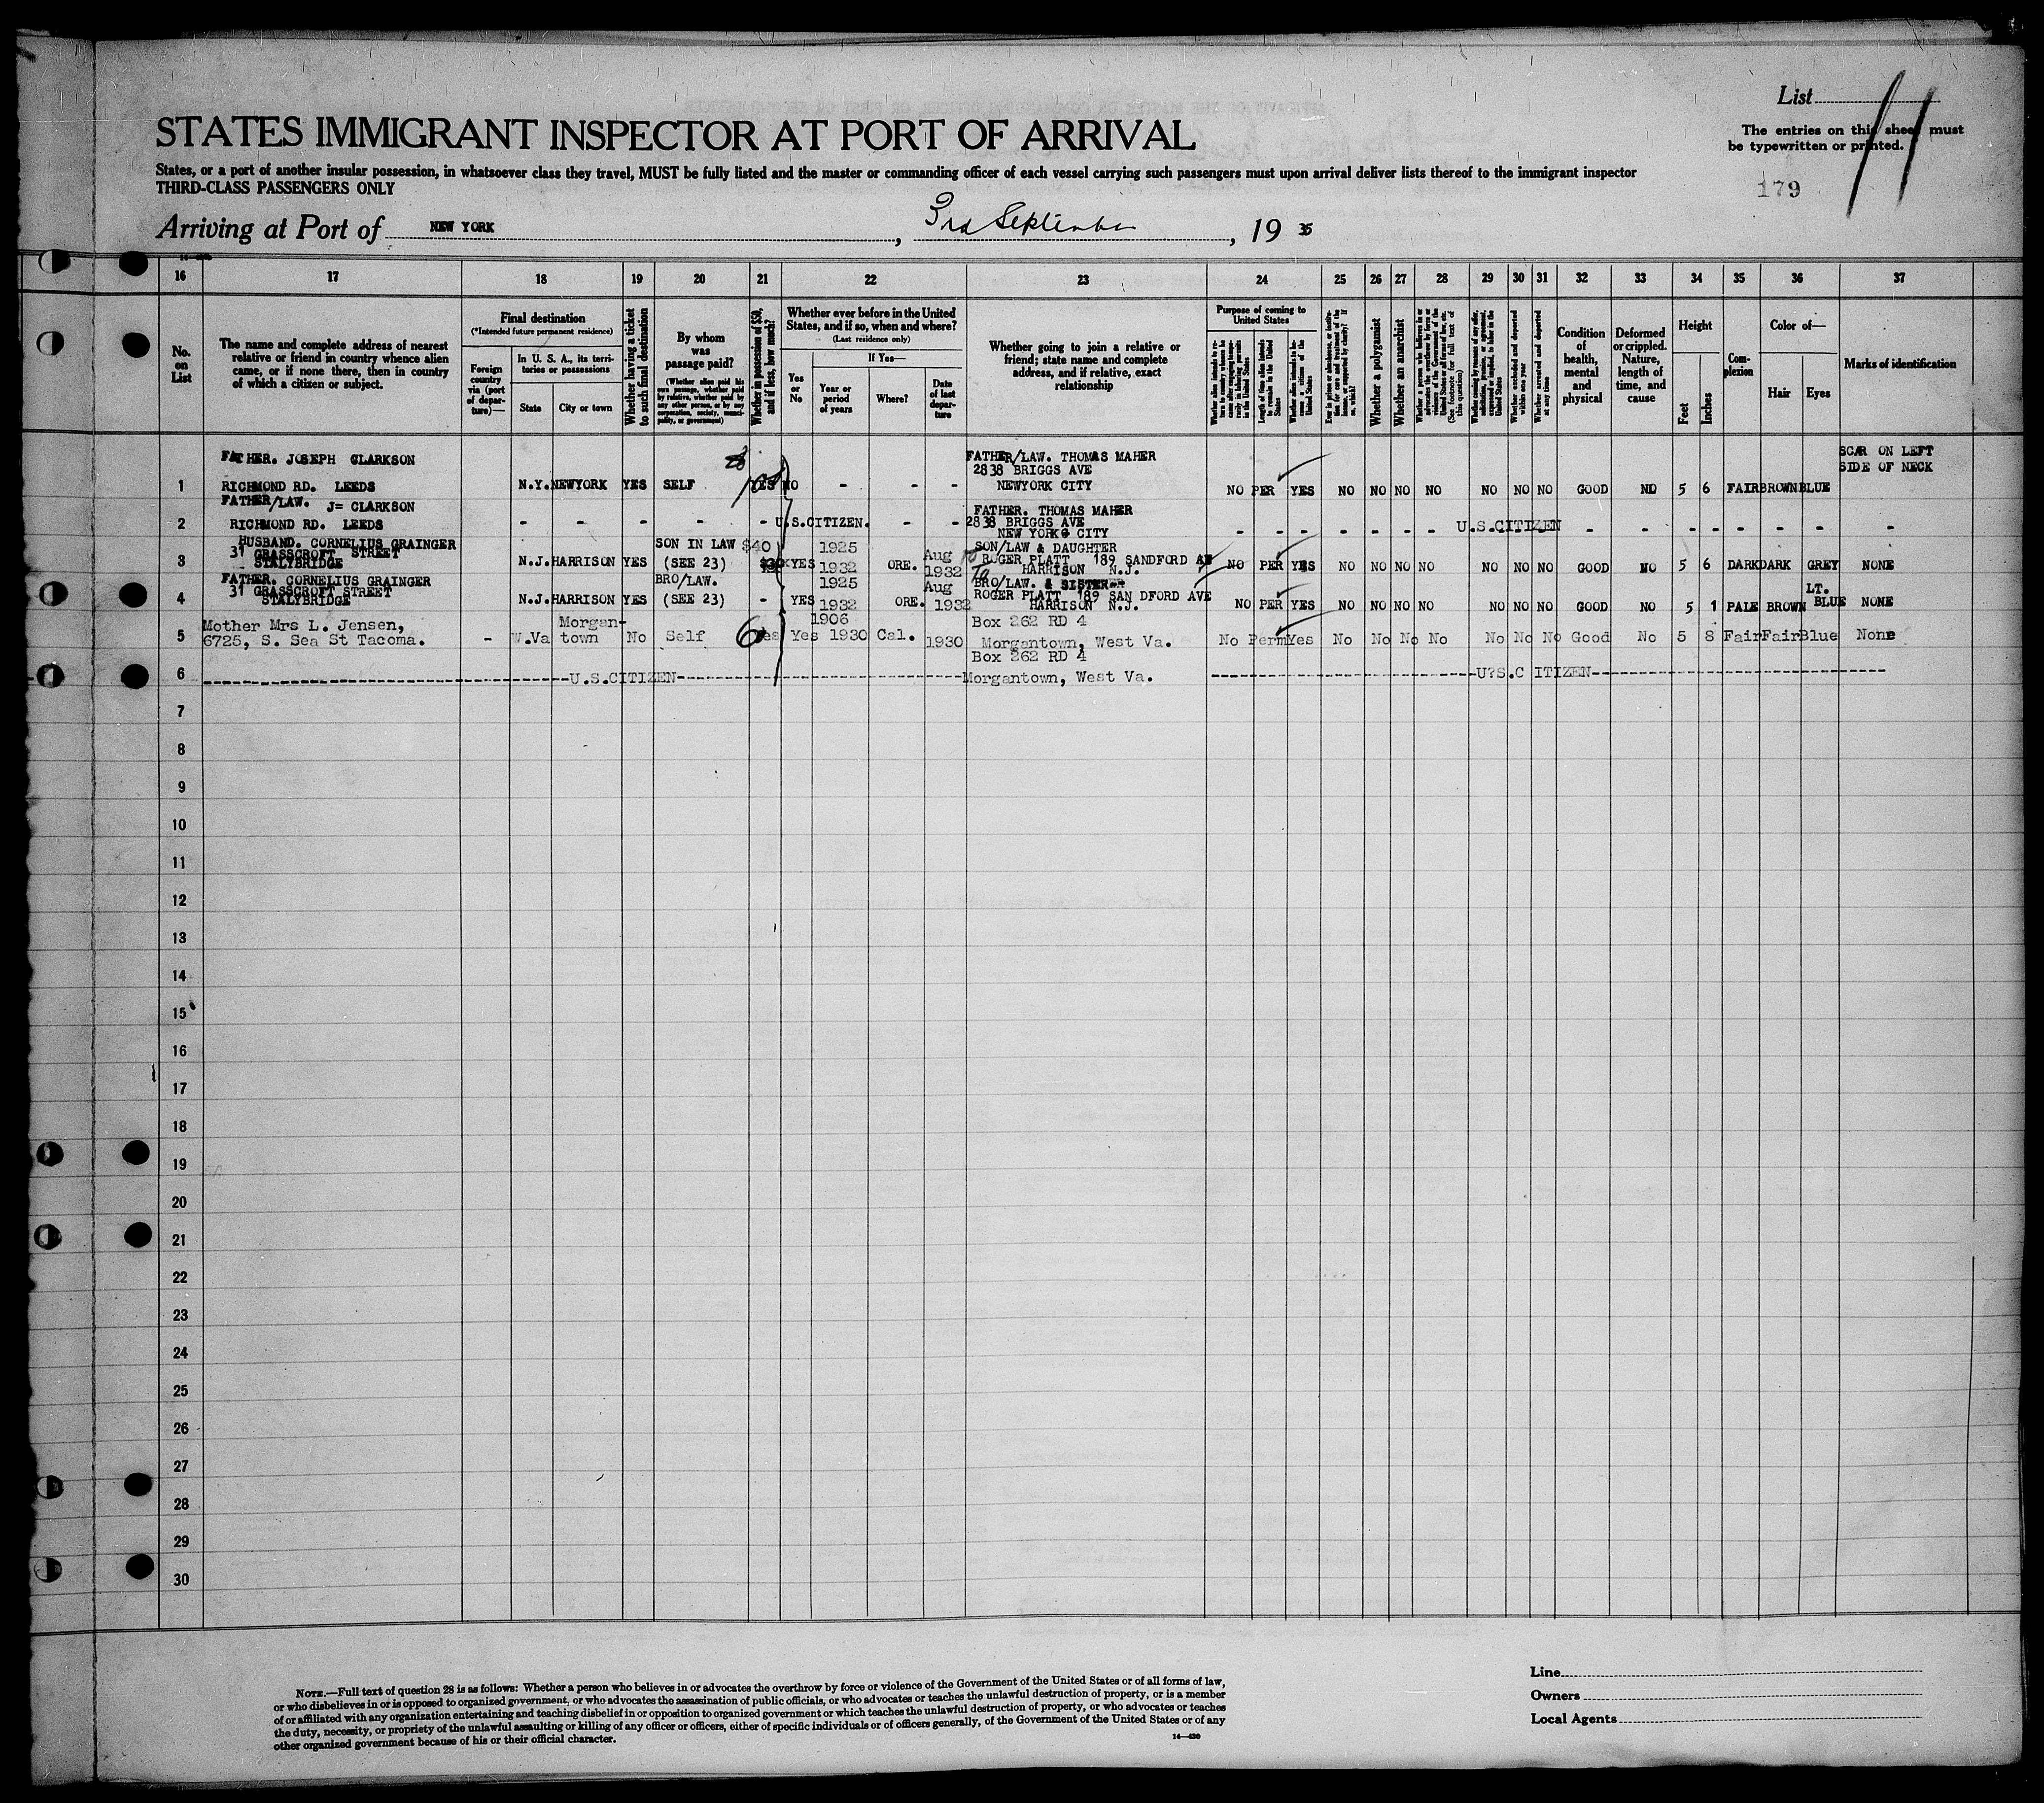 List 11
STATES IMMIGRANT INSPECTOR AT PORT OF ARRIVAL
The entries on this sheet must
be typewritten or printed.
States, or a port of another insular possession, in whatsoever class they travel, MUST be fully listed and the master or commanding officer of each vessel carrying such passengers must upon arrival deliver lists thereof to the immigrant inspector
THIRD-CLASS PASSENGERS ONLY
179
Arriving at Port of NEW YORK, 3rd September, 19 35
16 17 18 19 20 21 22 23 24 25 26 27 28 29 30 31 32 33 34 35 36 37
No. on List
The name and complete address of nearest relative or friend in country whence alien came, or if none there, then in country of which a citizen or subject.
Final destination
(*Intended future permanent residence)
Foreign country via (port of departure)—
In U. S. A., its territories or possessions
State
City or town
Whether having a ticket to such final destination
By whom was passage paid?
(Whether alien paid his own passage, whether paid by relative, whether paid by any other person, or by any corporation, society, municipality, or government)
Whether in possession of $50, and if less, how much?
Whether ever before in the United States, and if so, when and where?
(Last residence only)
Yes or No
If Yes—
Year or period of years
Where?
Date of last departure
Whether going to join a relative or friend; state name and complete address, and if relative, exact relationship
Purpose of coming to United States
Whether alien intends to return to country whence he came after engaging temporarily in laboring pursuits in the United States
Length of time alien intends to remain in the United States
Whether alien intends to become a citizen of the United States
Ever in prison or almshouse, or institution for care and treatment of the insane, or supported by charity? If so, which?
Whether a polygamist
Whether an anarchist
(See footnote for full text of this question)
Whether excluded and deported within one year
Whether arrested and deported at any time
Condition of health, mental and physical
Deformed or crippled. Nature, length of time, and cause
Height
Feet
Inches
Complexion
Color of—
Hair
Eyes
Marks of identification
FATHER. JOSEPH CLARKSON FATHER/LAW. THOMAS MAHER SCAR ON LEFT
2838 BRIGGS AVE SIDE OF NECK
1 RICHMOND RD. LEEDS N.Y. NEWYORK YES SELF YES NO - - - NEWYORK CITY NO PER YES NO NO NO NO NO NO NO GOOD NO 5 6 FAIR BROWN BLUE
FATHER/LAW. J= CLARKSON FATHER. THOMAS MAHER
2 RICHMOND RD. LEEDS - - - - - U.S.CITIZEN. - - 2838 BRIGGS AVE - - - - - - - U.S.CITIZEN - - - - - - - -
NEW YORKG CITY
HUSBAND. CORNELIUS GRAINGER SON IN LAW $40 1925 SON/LAW & DAUGHTER
3 31 GRASSCROFT STREET N.J. HARRISON YES (SEE 23) YES 1932 ORE. Aug 1932 ROGER PLATT 189 SANDFORD AV NO PER YES NO NO NO NO NO NO NO GOOD NO 5 6 DARK DARK GREY NONE
STALYBRIDGE HARRISON N.J.
FATHER. CORNELIUS GRAINGER BRO/LAW. 1925 Aug BRO/LAW. & SISTER LT.
4 31 GRASSCROFT STREET N.J. HARRISON YES (SEE 23) - YES 1932 ORE. 1932 ROGER PLATT 189 SAN DFORD AVE NO PER YES NO NO NO NO NO NO NO GOOD NO 5 1 PALE BROWN BLUE NONE
STALYBRIDGE HARRISON N.J.
Mother Mrs L. Jensen, Morgan- 1906 Box 262 RD 4
5 6725, S. Sea St Tacoma. - W.Va town No Self Yes Yes 1930 Cal. 1930 Morgantown, West Va. No Perm Yes No No No No No No No Good No 5 8 Fair Fair Blue None
Box 262 RD 4
6 ----------U.S.CITIZEN---------- Morgantown, West Va. ----------U?S.C ITIZEN----------
7
8
9
10
11
12
13
14
15
16
17
18
19
20
21
22
23
24
25
26
27
28
29
30
NOTE.—Full text of question 28 is as follows: Whether a person who believes in or advocates the overthrow by force or violence of the Government of the United States or of all forms of law,
or who disbelieves in or is opposed to organized government, or who advocates the assassination of public officials, or who advocates or teaches the unlawful destruction of property, or is a member
of or affiliated with any organization entertaining and teaching disbelief in or opposition to organized government or which teaches the unlawful destruction of property, or who advocates or teaches
the duty, necessity, or propriety of the unlawful assaulting or killing of any officer or officers, either of specific individuals or of officers generally, of the Government of the United States or of any
other organized government because of his or their official character.
14—430
Line
Owners
Local Agents